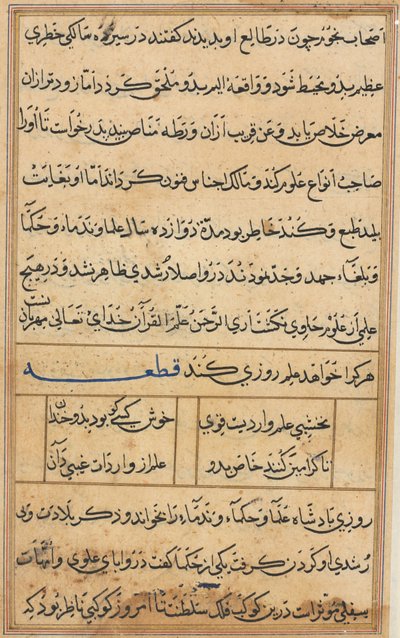 اصحاب نجوم چون در طالع او بدیدند کفتند در سیزده سالکی خطری
عظیم بدو محیط شود و واقعهٔ الیم بدو ملحق کردد اما زودتر ازان
معرض خلاص یابد و عن قریب ازان ورطه مناص بیند پدر خواست تا اورا
صاحب انواع علوم کند و مالک اجناس فنون کرداند اما او بغایت
بلید طبع و کند خاطر بود مدّة دوازده سال علما و ندماء و حکما
و بلغاء جهد و جد نمودند درو اصلا رشدی ظاهر نشد و در هیچ
علمی از علوم حاوی نکشت آری الرّحمن علّم القرآن خدای تعالی مهربان نیست
هر کرا خواهد علم روزی کند قطعه
نخشبی علم واردیست قوی خوش کسی کو بود بدو خندان
تا کرا میکنند خاص بدو علم از واردات غیبی دان
روزی پادشاه علما و حکماء و ندماء را بخواند و ذکر بلادت و بی
رشدی او کردن کرفت یکی از حکما کفت در زوایای علوی و امّهات
سفلی مؤثر است درین کوکب فلک سلطنت تا امروز کوکبی ناظر بود که